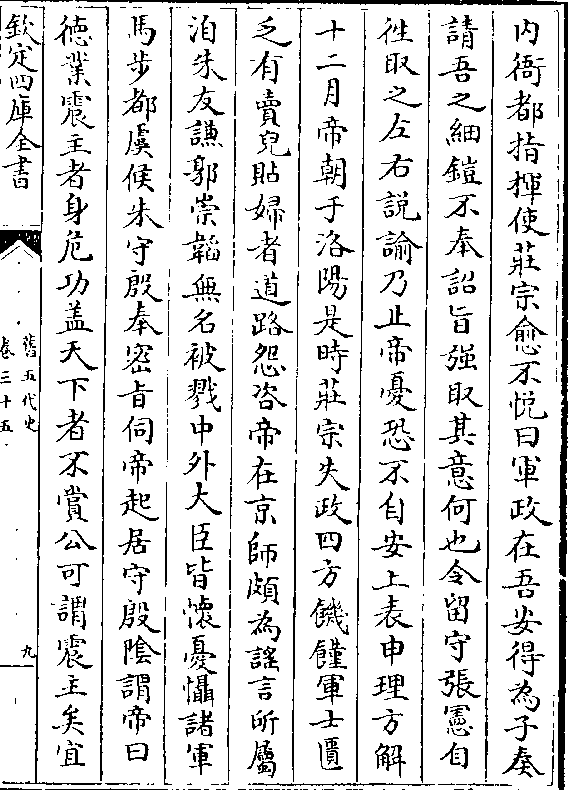 内衙都指揮使莊宗愈不悦曰軍政在吾安得為子奏
請吾之細鎧不奉詔旨强取其意何也令留守張憲自
徃取之左右説諭乃止帝憂恐不自安上表申理方解
十二月帝朝于洛陽是時莊宗失政四方饑饉軍士匱
乏有賣兒貼婦者道路怨咨帝在京師頗為謡言所屬
洎朱友謙郭崇韜無名被戮中外大臣皆懐憂懾諸軍
馬步都虞候朱守殷奉密旨伺帝起居守殷隂謂帝曰
徳業震主者身危功盖天下者不賞公可謂震主矣宜
欽定四庫全書
舊五代史
卷三十五
九